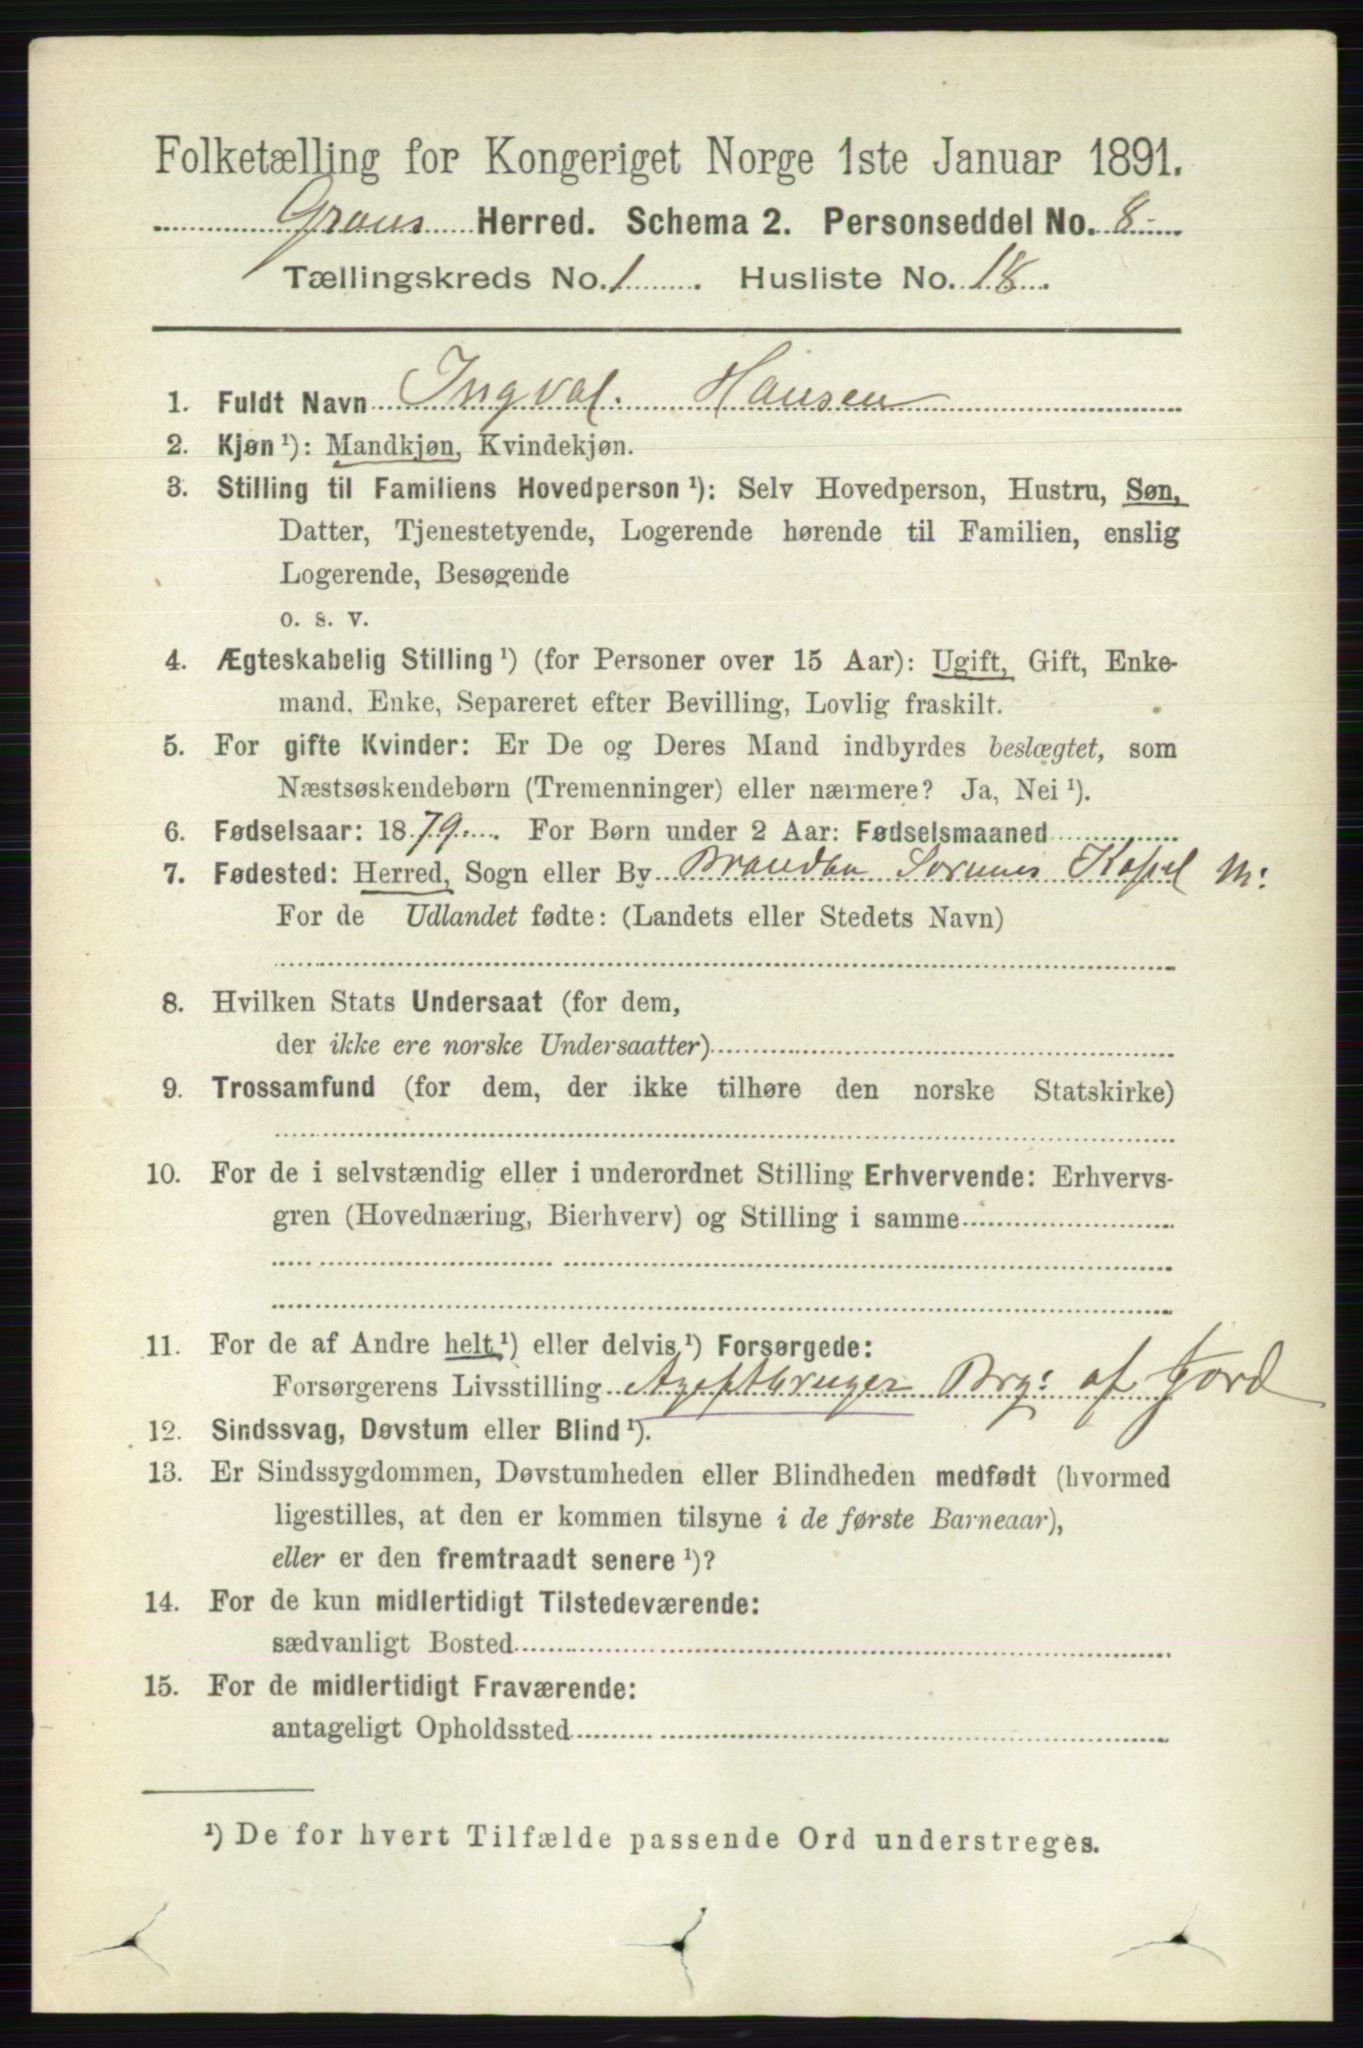 Folketælling for Kongeriget Norge 1ste Januar 1891.
Grans Herred. Schema 2. Personseddel No. 8
Tællingskreds No. 1 Husliste No. 18.
1. Fuldt Navn Ingval. Hansen
2. Kjøn ¹): Mandkjøn, Kvindekjøn.
3. Stilling til Familiens Hovedperson ¹): Selv Hovedperson, Hustru, Søn,
Datter, Tjenestetyende, Logerende hørende til Familien, enslig
Logerende, Besøgende
o. s. v.
4. Ægteskabelig Stilling ¹) (for Personer over 15 Aar): Ugift, Gift, Enke-
mand, Enke, Separeret efter Bevilling, Lovlig fraskilt.
5. For gifte Kvinder: Er De og Deres Mand indbyrdes beslægtet, som
Næstsøskendebørn (Tremenninger) eller nærmere? Ja, Nei ¹).
6. Fødselsaar: 1879. For Børn under 2 Aar: Fødselsmaaned
7. Fødested: Herred, Sogn eller By Brandbu
For de Udlandet fødte: (Landets eller Stedets Navn)
8. Hvilken Stats Undersaat (for dem,
der ikke ere norske Undersaatter)
9. Trossamfund (for dem, der ikke tilhøre den norske Statskirke)
10. For de i selvstændig eller i underordnet Stilling Erhvervende: Erhvervs-
gren (Hovednæring, Bierhverv) og Stilling i samme
11. For de af Andre helt ¹) eller delvis ¹) Forsørgede:
Forsørgerens Livsstilling Brg: af Jord
12. Sindssvag, Døvstum eller Blind ¹).
13. Er Sindssygdommen, Døvstumheden eller Blindheden medfødt (hvormed
ligestilles, at den er kommen tilsyne i de første Barneaar),
eller er den fremtraadt senere ¹)?
14. For de kun midlertidigt Tilstedeværende:
sædvanligt Bosted
15. For de midlertidigt Fraværende:
antageligt Opholdssted
¹) De for hvert Tilfælde passende Ord understreges.